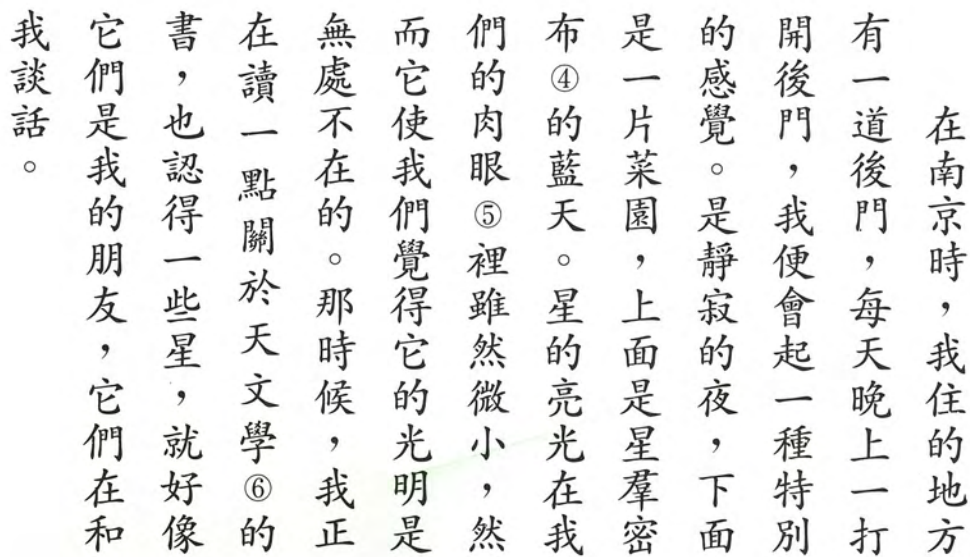 在南京時，我住的地方
有一道後門，每天晚上一打
開後門，我便會起一種特別
的感覺。是靜寂的夜，下面
是一片菜園，上面是星羣密
布④的藍天。星的亮光在我
們的肉眼⑤裡雖然微小，然
而它使我們覺得它的光明是
無處不在的。那時候，我正
在讀一點關於天文學⑥的
書，也認得一些星，就好像
它們是我的朋友，它們在和
我談話。